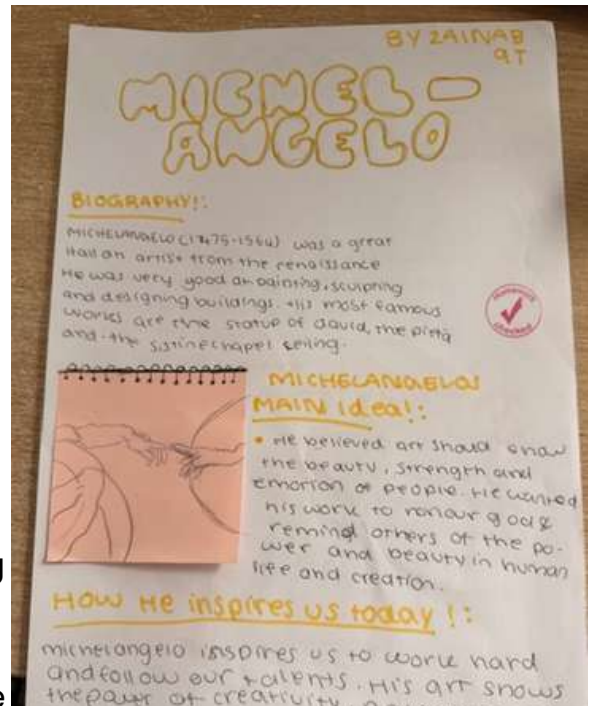 BY ZAINAB
9T
MICHEL-
ANGELO
BIOGRAPHY!:
MICHELANGELO (1475-1564) was a great
italian artist from the renaissance
He was very good at painting, sculpting
and designing buildings. His most famous
works are the statue of david, the pietà
and the sistine chapel seiling.
Homework
checked
MICHELANGELOS
MAIN idea!:
• He believed art should show
the beauty, strength and
emotion of people. He wanted
his work to honour god &
remind others of the po-
wer and beauty in human
life and creation.
HOW He inspires us today !:
michelangelo inspires us to work hard
and follow our talents. His art shows
the power of creativity
g
e